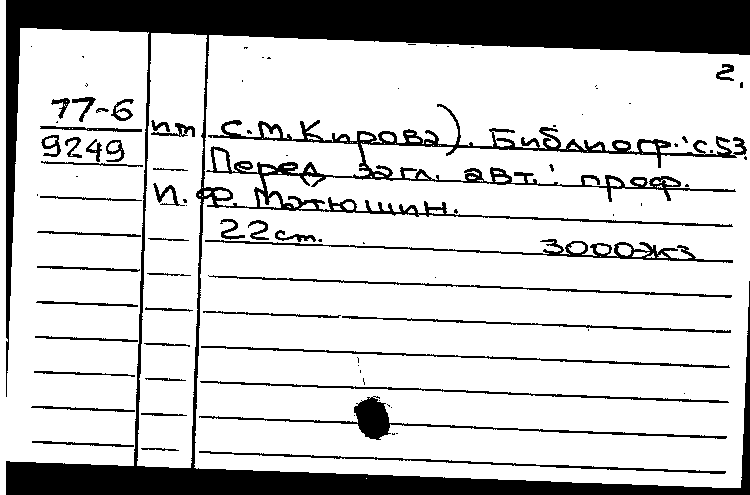 2.
77-6
9249
ит. С.М. Кирова). Библиогр.: с.53
Перед загл. авт.: проф.
И. Ф. Матюшин.
22 см. 3000 экз